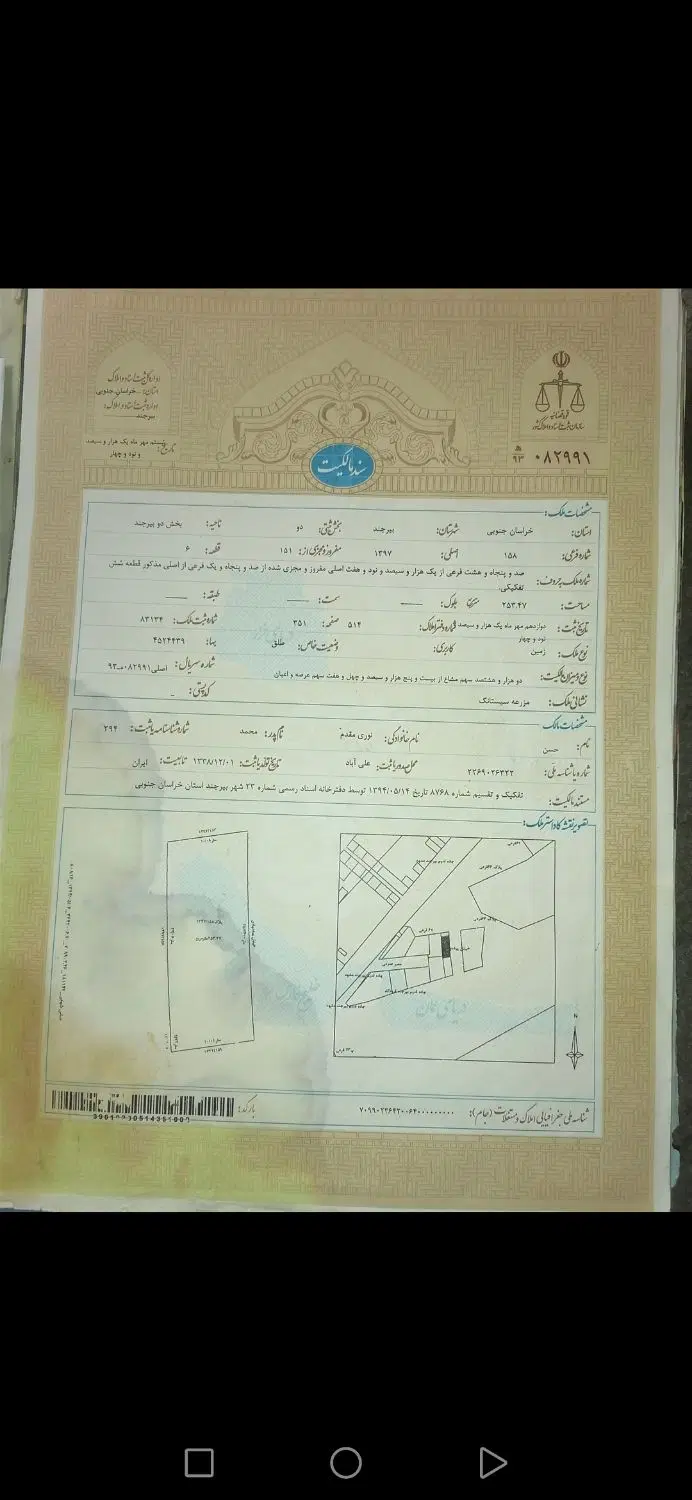 قوه قضائیه
سازمان ثبت اسناد و املاک کشور
۰۸۲۹۹۱
۹۳
اداره کل ثبت اسناد و املاک
استان: خراسان جنوبی
اداره ثبت اسناد و املاک:
بیرجند
تاریخ: بیستم مهر ماه یک هزار و سیصد و نود و چهار
سند مالکیت
مشخصات ملک:
استان: خراسان جنوبی شهرستان: بیرجند بخش ثبتی: دو ناحیه: بخش دو بیرجند
شماره فرعی: ۱۵۸ اصلی: ۱۳۹۷ مفروز و مجزی از: ۱۵۱ قطعه: ۶
شماره ملک به حروف: صد و پنجاه و هشت فرعی از یک هزار و سیصد و نود و هفت اصلی مفروز و مجزی شده از صد و پنجاه و یک فرعی از اصلی مذکور قطعه شش
تفکیکی.
مساحت: ۲۵۳.۴۷ بلوک: سمت: طبقه:
تاریخ ثبت: دوازدهم مهر ماه یک هزار و سیصد و نود و چهار شماره دفتر املاک: ۵۱۴ صفحه: ۳۵۱ شماره ثبت ملک: ۸۳۱۳۴
نوع ملک: زمین کاربری: وضعیت خاص: طلق بها: ۴۵۲۴۴۳۹
نوع و میزان مالکیت: دو هزار و هشتصد سهم مشاع از بیست و پنج هزار و سیصد و چهل و هفت سهم عرصه و اعیان شماره سریال: اصلی۰۸۲۹۹۱-د-۹۳
نشانی ملک: مزرعه سیستانک کد پستی: -
مشخصات مالک
نام: حسن نام خانوادگی: نوری مقدم نام پدر: محمد شماره شناسنامه یا ثبت: ۲۹۴
شماره یا شناسه ملی: ۲۲۶۹۰۲۶۳۲۲ محل صدور یا ثبت: علی آباد تاریخ تولد یا ثبت: ۱۳۳۸/۱۲/۰۱ تابعیت: ایران
مستند مالکیت: تفکیک و تقسیم شماره ۸۷۶۸ تاریخ ۱۳۹۴/۰۵/۱۴ توسط دفترخانه اسناد رسمی شماره ۲۳ شهر بیرجند استان خراسان جنوبی
تصویر نقشه کاداستر ملک:
N
خلیج فارس
دریای عمان
شناسه ملی جغرافیایی املاک و مستغلات (جام): ۷۰۹۹۰۲۳۶۴۲۰۰۶۴۰۰۰۰۰۰۰۰۰۰
بارکد: